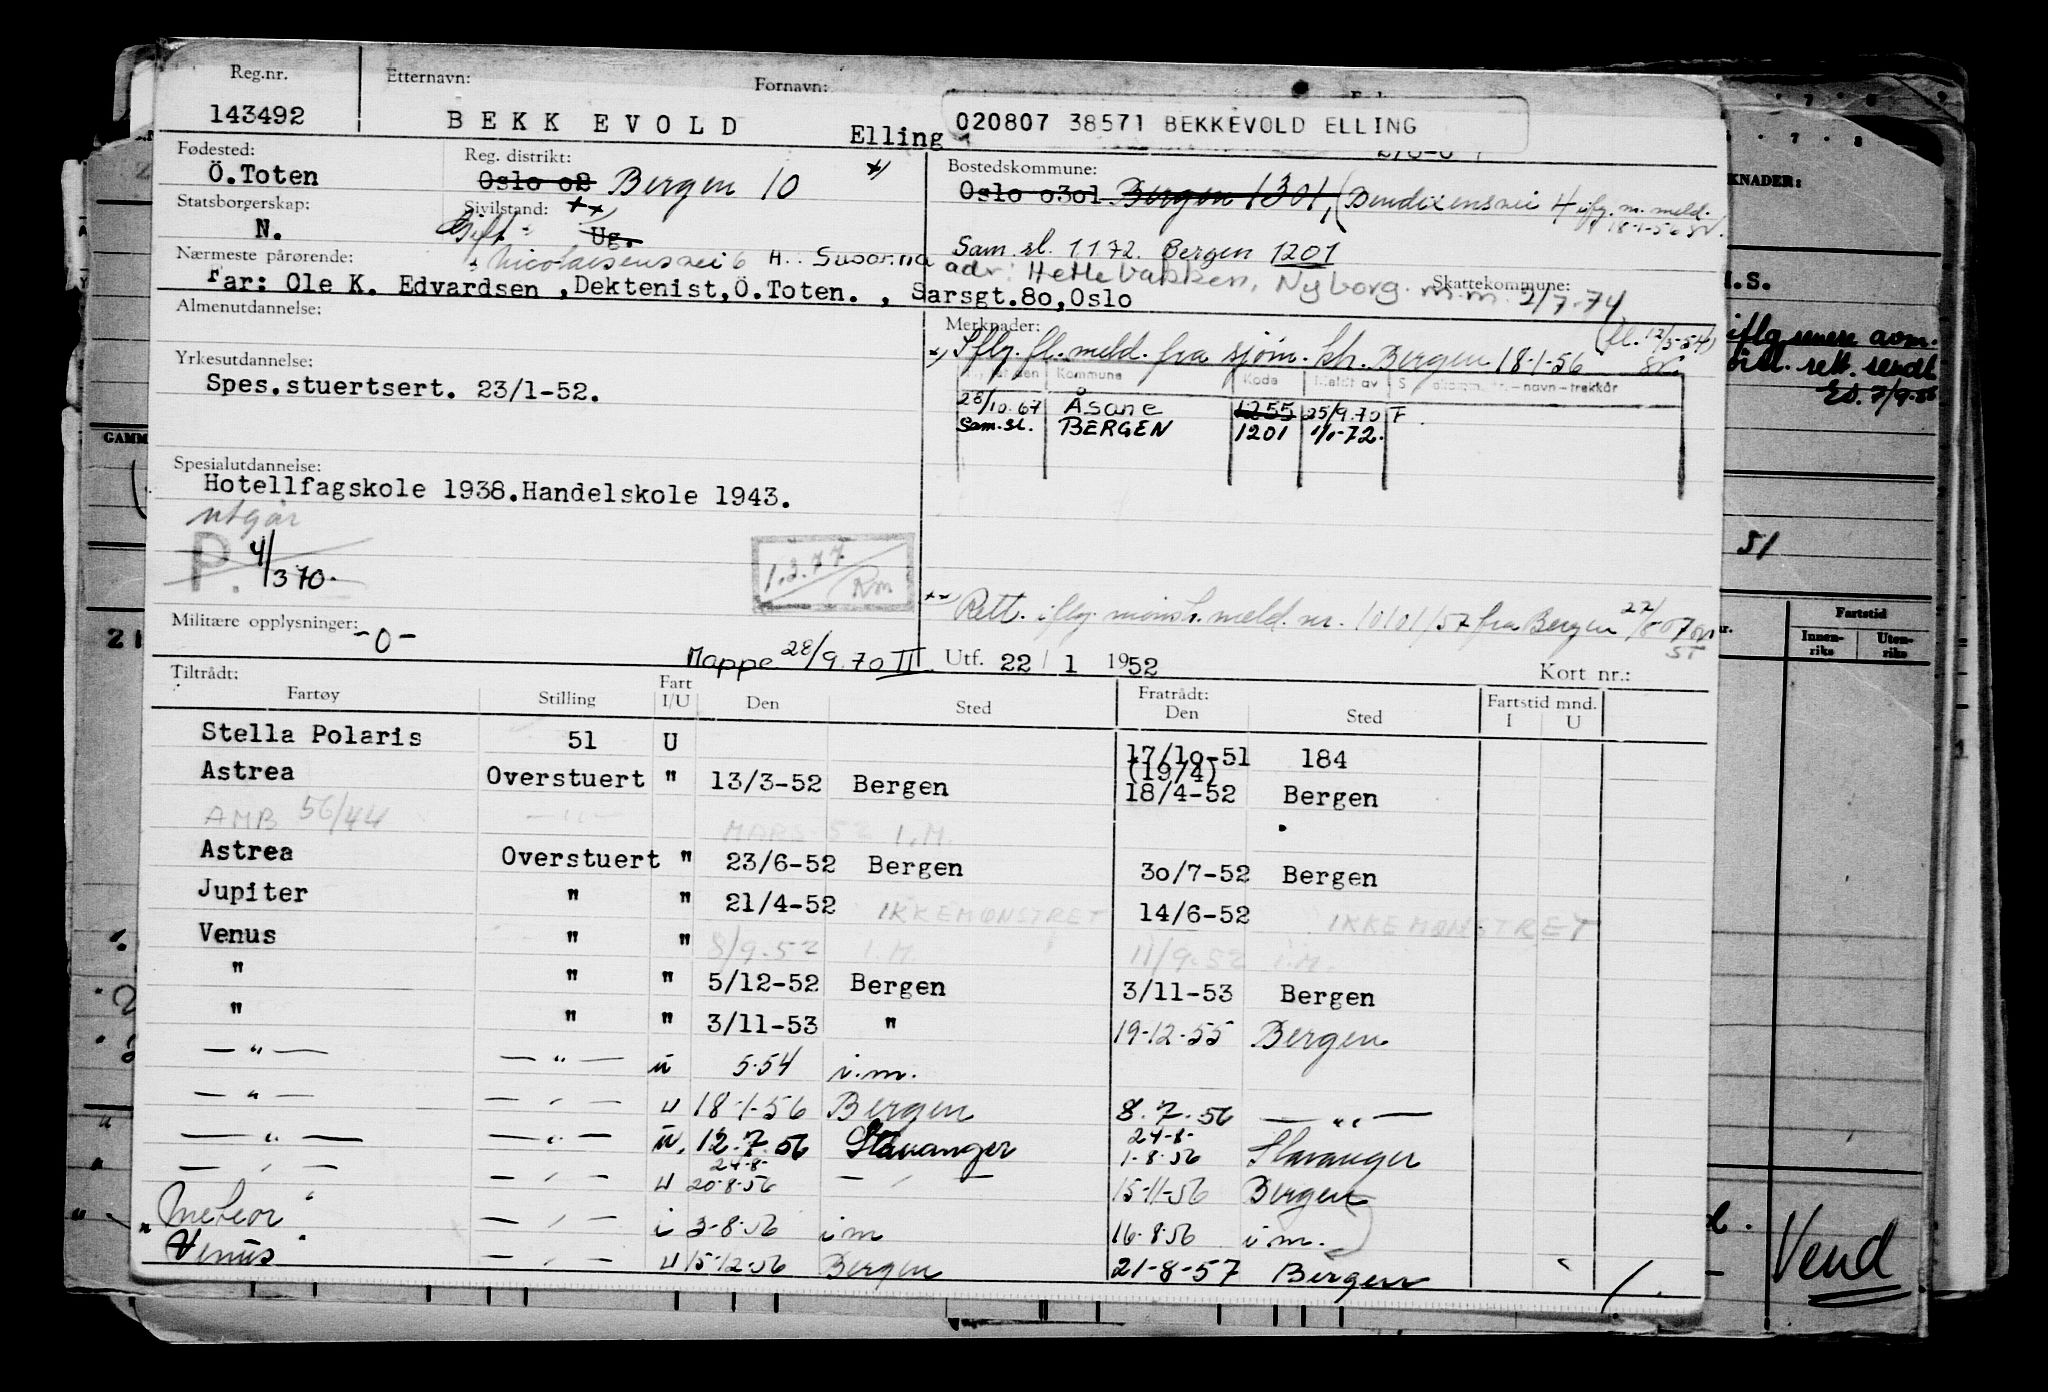 Reg.nr. Etternavn: Fornavn:
143492 BEKK EVOLD Elling 020807 38571 BEKKEVOLD ELLING
Fødested: Reg. distrikt: Bostedskommune:
Ö.Toten Oslo o2 Bergen 10 x) Oslo o3o1. Bergen 1301, (Bendixensvei 4 iflg. m. meld. 18-1-56
Statsborgerskap: Sivilstand: xx)
N. Gift Ug. Sam. sl. 1.1.72. Bergen 1201
Nærmeste pårørende: Nicolaisensvei 6 H.: Susanna adr: Hetlebakken, Nyborg. m.m. 2/7-74 Skattekommune:
Far: Ole K. Edvardsen ,Dektenist,Ö.Toten. , Sarsgt.8o,Oslo
Almenutdannelse: Merknader:
x) Iflg. fl. meld. fra sjøm. ktr. Bergen 18-1-56
Yrkesutdannelse: Kommune Kode Meldt av S – navn – trekkår
Spes.stuertsert. 23/1-52.
28/10.67 Åsane 1255 25/9.70 F
Sam.sl. BERGEN 1201 1/1-72.
Spesialutdannelse:
Hotellfagskole 1938.Handelskole 1943.
utgår
P. 4/3 70.
1.3.77 Rm
xx) Rett. iflg. mønstr. meld. nr. 10101/57 fra Bergen
Militære opplysninger: -0-
Mappe 28/9.70 III Utf. 22 / 1 1952 Kort nr.:
Tiltrådt: Fratrådt: Fartstid mnd.
Fartøy Stilling Fart I/U Den Sted Den Sted I U
Stella Polaris 51 U 17/1o-51 184
Astrea Overstuert " 13/3-52 Bergen (19/4) 18/4-52 Bergen
AMB 56/44 –"– MARS 52 I.M.
Astrea Overstuert " 23/6-52 Bergen 3o/7-52 Bergen
Jupiter " " 21/4-52 IKKE MØNSTRET 14/6-52 IKKE MØNSTRET
Venus " " 8/9.52 I.M. 11/9.52 I.M.
" " " 5/12-52 Bergen 3/11-53 Bergen
" " " 3/11-53 " 19-12-55 Bergen
–"– –"– u 5-54 i.m.
–"– –"– u 18-1-56 Bergen 8.7.56 –"–
–"– –"– u. 12.7.56 Stavanger 24-8- 1-8-56 Stavanger
–"– –"– u 24-8- 20-8-56 –"– 15-11-56 Bergen
Meteor –"– i 3-8-56 i m 16-8-56 i m.
" Venus –"– u 15-12-56 Bergen 21-8-57 Bergen
KNADER:
51
Fartstid
Innen-riks Uten-riks
GAMM
21
Vend